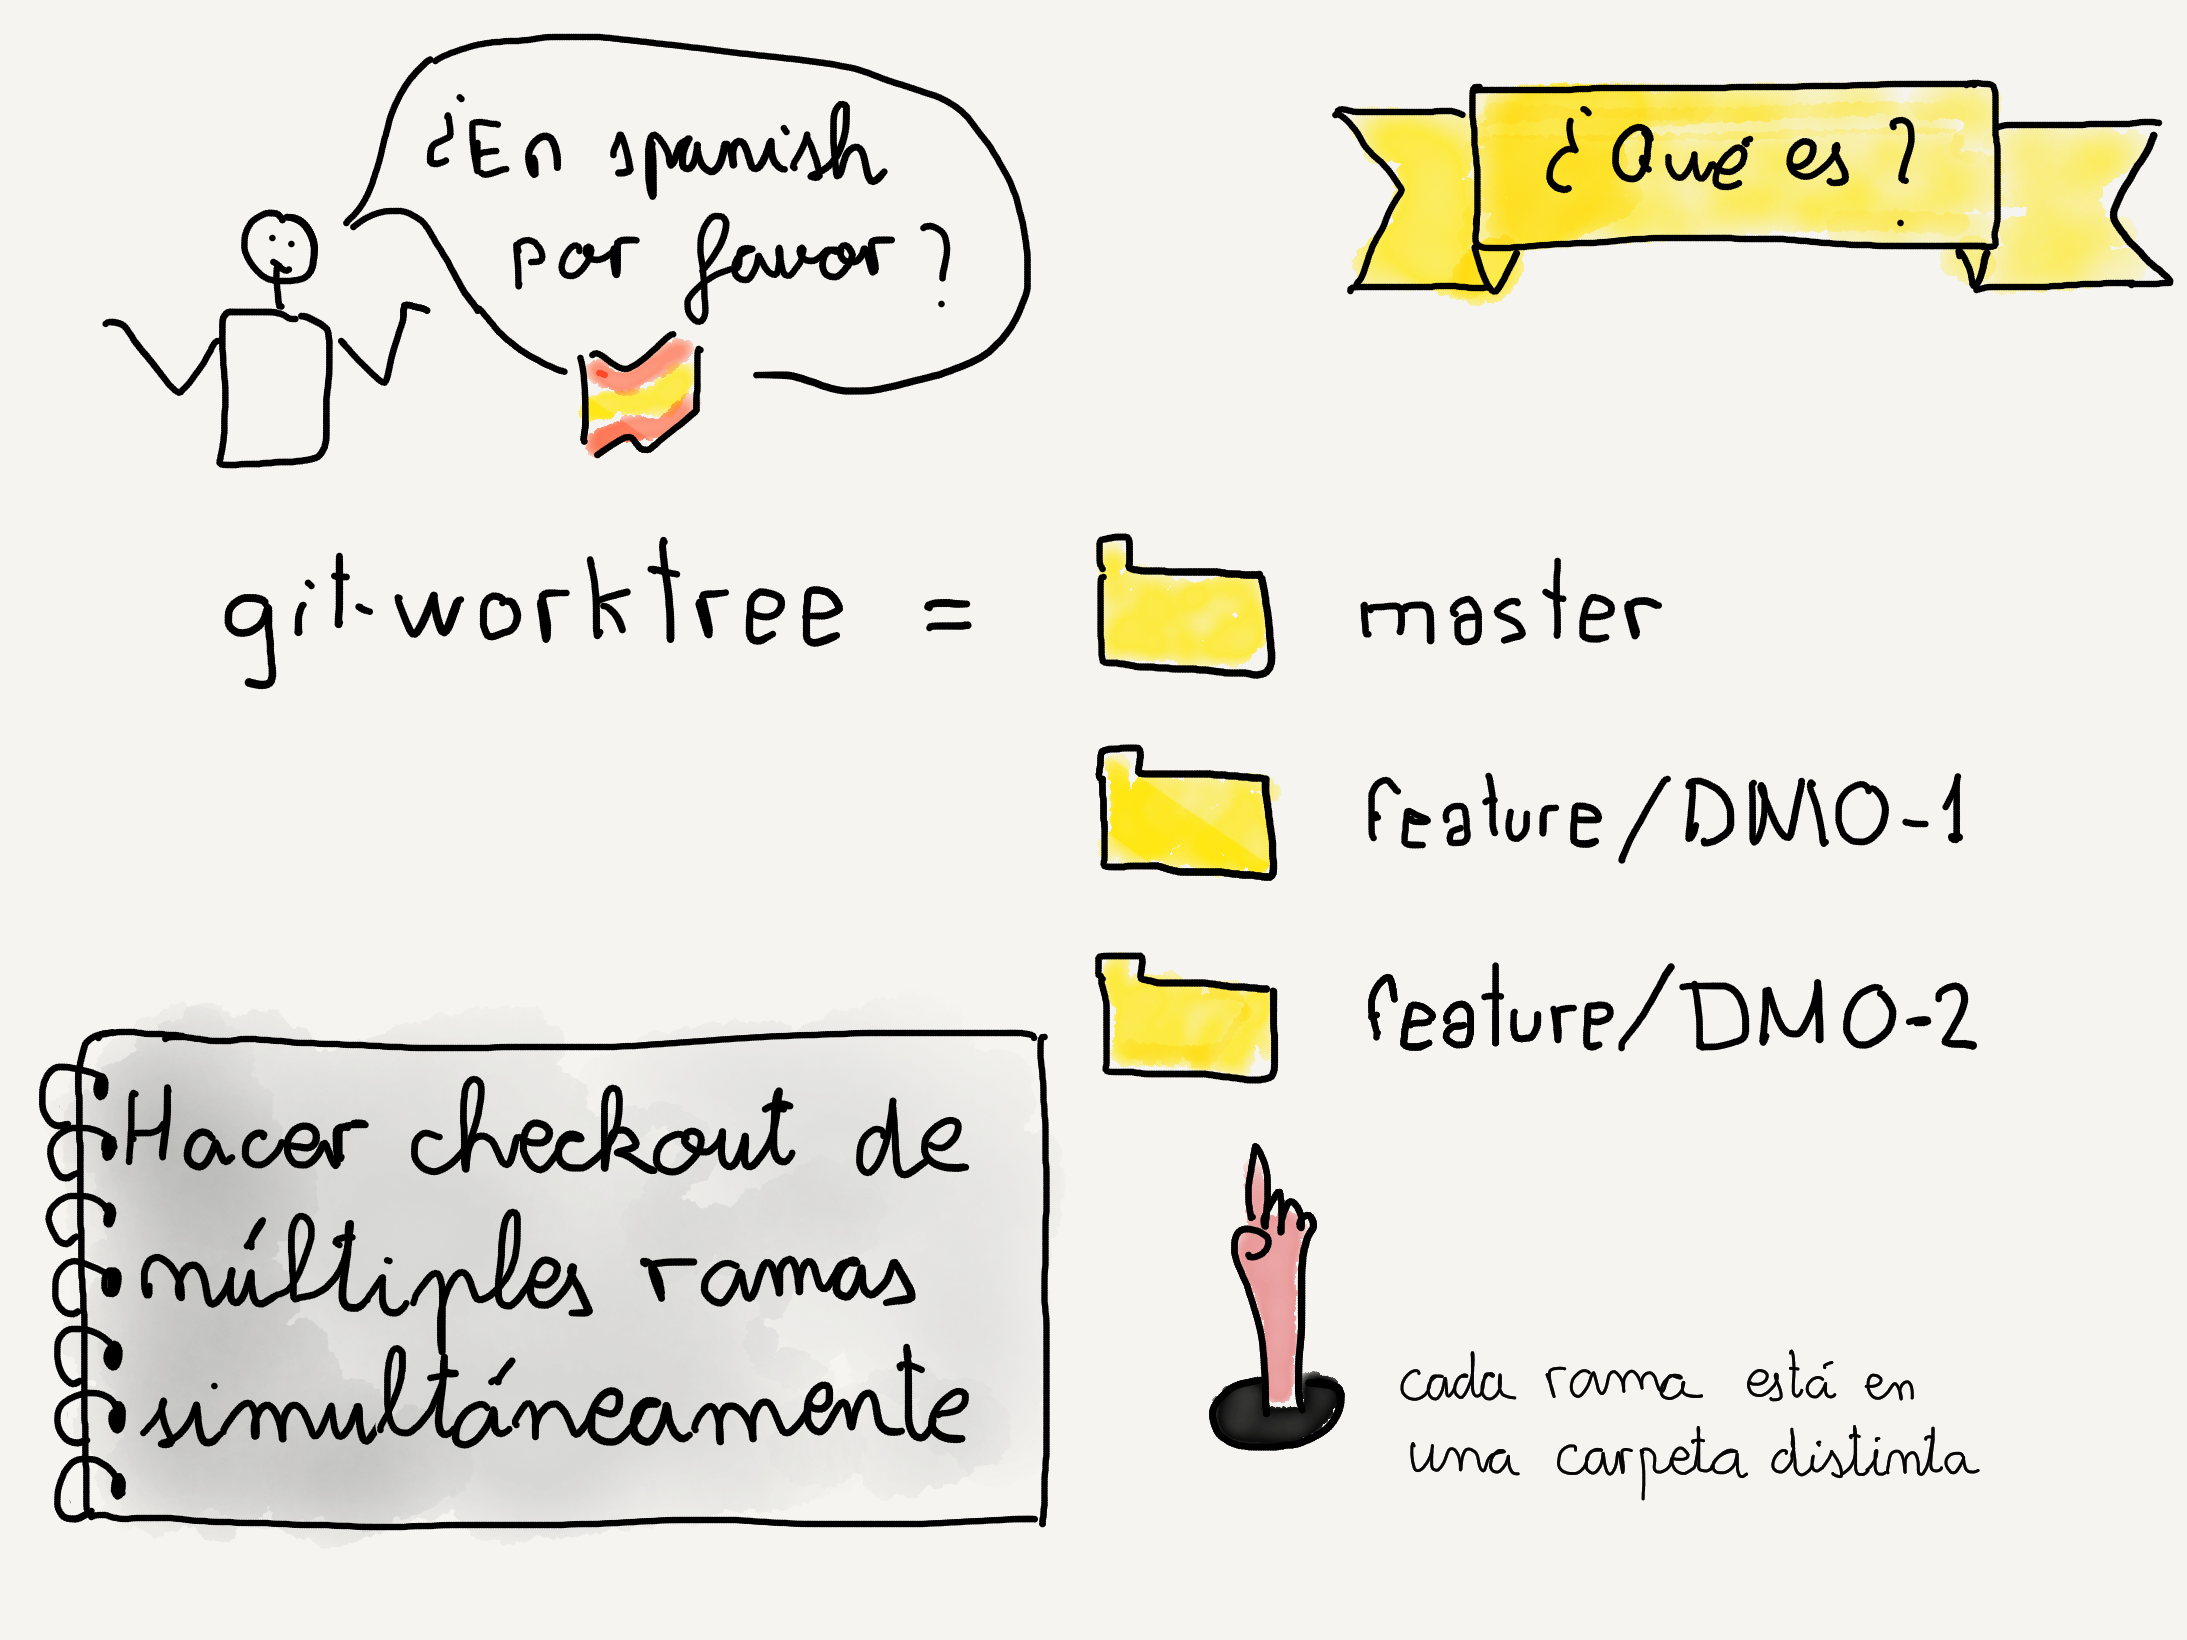 ¿En spanish
por favor?
¿Qué es?
git-worktree = master
feature/DMO-1
feature/DMO-2
Hacer checkout de
múltiples ramas
simultáneamente
cada rama está en
una carpeta distinta